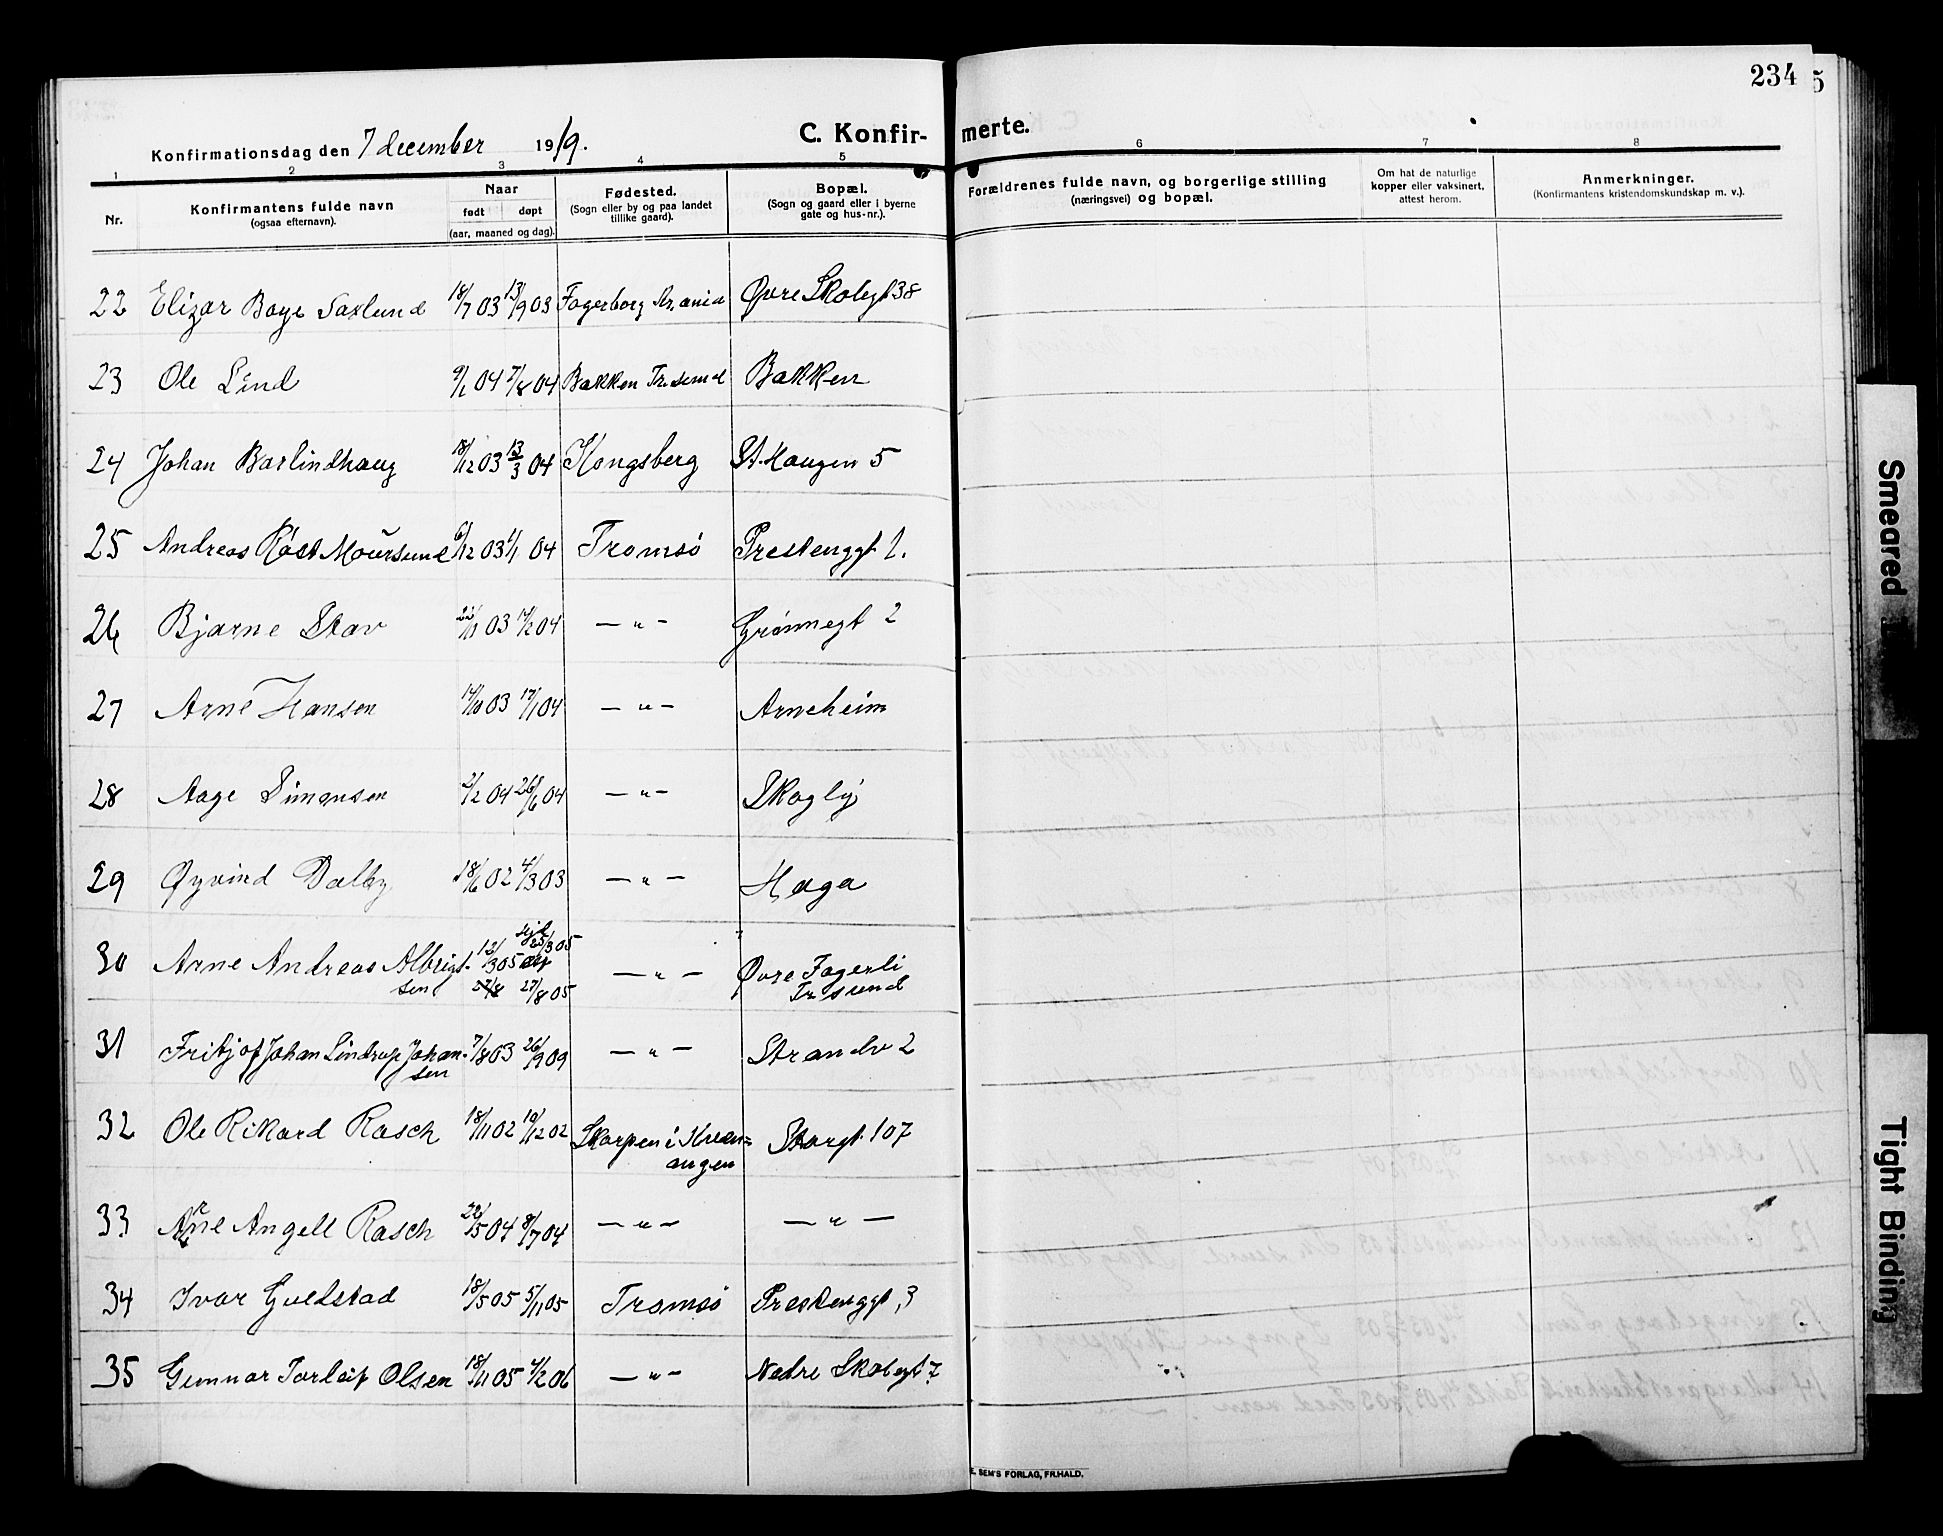 234
5
C. Konfir- merte.
Konfirmationsdag den 7 december 1919.
1 2 3 4 5 6 7 8
Nr.
Konfirmantens fulde navn
(ogsaa efternavn).
Naar
født døpt
(aar, maaned og dag).
Fødested.
(Sogn eller by og paa landet
tillike gaard).
Bopæl.
(Sogn og gaard eller i byerne
gate og hus-nr.).
Forældrenes fulde navn, og borgerlige stilling
(næringsvei) og bopæl.
Om hat de naturlige
kopper eller vaksinert,
attest herom.
Anmerkninger.
(Konfirmantens kristendomskundskap m. v.).
22 Elizar Boye Saxlund 18/7 03 13/9 03 Fagerborg Kr.ania Øvre Skolegt 38
23 Ole Lind 9/1 04 7/8 04 Bakken Tr.sund Bakken
24 Johan Barlindhaug 18/12 03 13/3 04 Kongsberg St. Haugen 5
25 Andreas Røst Moursund 6/12 03 1/1 04 Tromsø Prestenggt 1.
26 Bjarne Skav 22/11 03 14/2 04 — " — Grønnegt 2
27 Arne Hansen 14/10 03 17/1 04 — " — Arneheim
28 Aage Simonsen 2/2 04 26/6 04 — " — Skogly
29 Øyvind Dalby 18/6 02 4/3 03 — " — Haga
30 Arne Andreas Albrigt- 12/3 05 25/3 05 — " — Øvre Fagerli
sen 27/8 27/8 05 Tr sund
31 Fritjof Johan Lindrup Johan- 7/8 03 26/9 09 — " — Strandv 2
sen
32 Ole Rikard Rasch 18/11 02 19/12 02 Skorpen i Kvæn= Storgt. 107
angen
33 Arne Angell Rasch 22/5 04 8/7 04 — " — — " —
34 Ivar Guldstad 18/5 05 5/11 05 Tromsø Prestenggt, 3
35 Gunnar Torleif Olsen 18/11 05 4/2 06 — " — Nedre Skolegt 7
E. SEM'S FORLAG, FR.HALD.
Smeared
Tight Binding